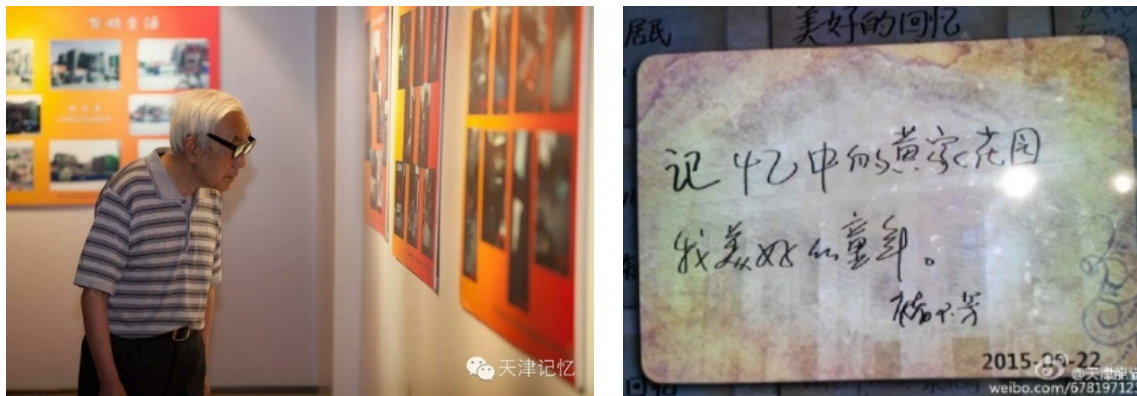 百姓生活
天津记忆
居民
美好的回忆
记忆中的黄家花园
我美好的童年。
2015-09-22
weibo.com/678197125